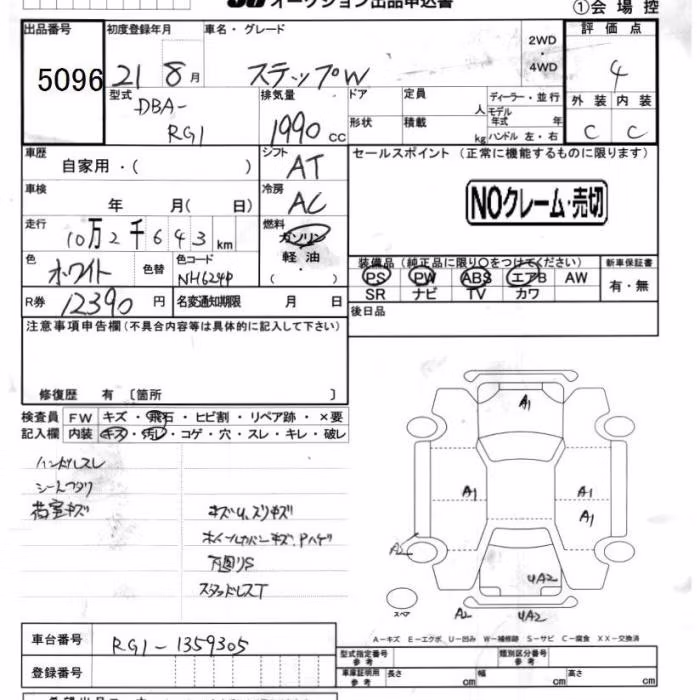 オークション出品申込書
①会場控
出品番号 初度登録年月 車名・グレード 評価点
5096 21 8月 ステップW 2WD・4WD 4
型式 排気量 ドア 定員 ディーラー・並行 外装 内装
DBA- 人 モデル年式 年
RG1 1990cc 形状 積載 kg ハンドル 左・右 C C
車歴 シフト セールスポイント (正常に機能するものに限ります)
自家用・( ) AT
車検 冷房 NOクレーム・売切
年 月( 日) AC
走行 燃料
10万2千643km ガソリン
色 色替 色コード 軽油 装備品 (純正品に限り○をつけてください) 新車保証書
ホワイト NH624P ( ) PS PW ABS エアB AW 有・無
R券 12390円 名変通知期限 月 日 SR ナビ TV カワ
注意事項申告欄(不具合内容等は具体的に記入して下さい) 後日品
修復歴 有 〔箇所 〕
検査員 FW キズ・飛石・ヒビ割・リペア跡・×要
記入欄 内装 キズ・汚レ・コゲ・穴・スレ・キレ・破レ
ハンドルスレ
荷室キズ
A1
A1 A1
A1
A2
UA2
スペア A2 UA2
A−キズ E−エクボ U−凹み W−補修跡 S−サビ C−腐食 XX−交換済
車台番号 RG1-1359305 型式指定番号 参考 類別区分番号 参考
登録番号 車庫証明用 参考 長さ cm 幅 cm 高さ cm